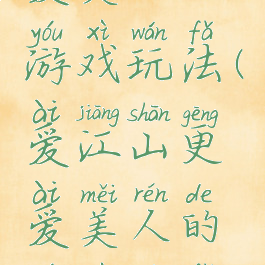 yóu xì wán fǎ
游戏玩法(
ài jiāng shān gēng
爱江山更
ài měi rén de
爱美人的